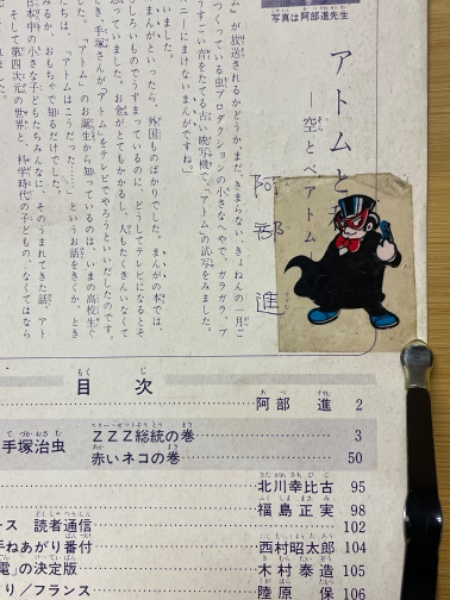 写真は阿部進先生
アトムと
―空とべアトム―
阿部進
ム」が放送されるかどうか、まだ、きまらない、きょねんの一月ご
つくっている虫プロダクションの小さなへやで、ガラガラ、ブ
うすごい音をたてる古い映写機で、「アトム」の試写をみました。
ニーにまけないまんがですね。」
いました。
まんがといったら、外国ものばかりでした。まんがの本では、
しろいものでうずまっているのに、どうしてテレビになるとそ
思っていました。お金がとてもかかるし、人もたくさんいなくて
とき、手塚さんが「アトム」をテレビでやろうといいだしたのです。
した。「アトム」のお誕生から知っているのは、いまの高校生ぐ
たちは、「アトムはこうだった……」というお話をきくか、とき
みるか、おもちゃで知るだけでした。
日本中の小さな子どもたちみんなに、そのうまれてきた話、アト
そして第四次元の世界と、科学時代の子どもの、なくてはなら
目次
阿部 進 2
手塚治虫 ZZZ総統の巻 3
赤いネコの巻 50
北川幸比古 95
福島正実 98
ース 読者通信 102
手ねあがり番付 西村昭太郎 104
電」の決定版 木村泰造 105
り/フランス 陸原 保 106